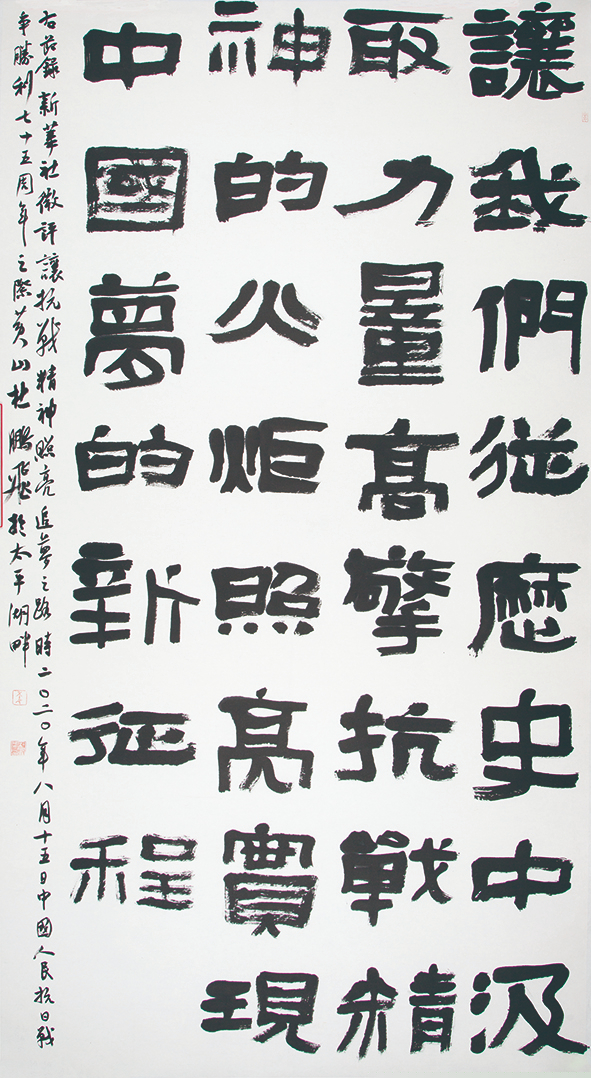 讓我們從歷史中汲
取力量高擎抗戰精
神的火炬照亮實現
中國夢的新征程
右節錄新華社微評讓抗戰精神照亮追夢之路時二〇二〇年八月十五日中國人民抗日戰
争勝利七十五周年之際黄山杜鵬飛於太平湖畔